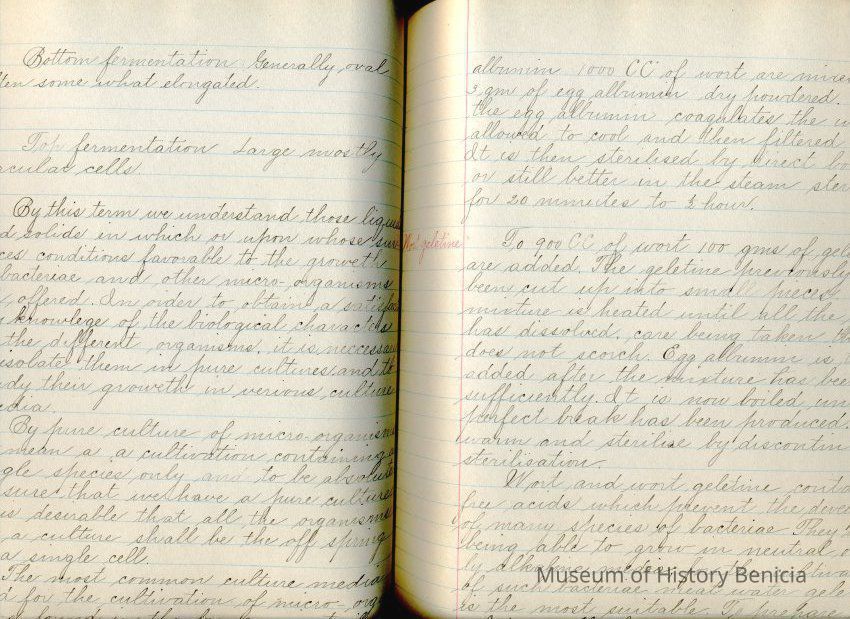 Bottom fermentation Generally oval
ten some what elongated.
Top fermentation Large mostly
acular cells
By this term we understand those liquids
d solids in which or upon whose sur-
ces conditions favorable to the growth
bacteriae and other micro-organisms
offered. In order to obtain a
knowlege of the biological characters
the different organisms, it is neccessary
isolate them in pure cultures and to
udy their growth in verious culture
edia.
By pure culture of micro-organisms
mean a a cultivation containing a
gle species only and to be absolute
sure that we have a pure culture
is desirable that all the organisms
a culture shall be the off spring
a single cell.
The most common culture media
d for the cultivation of micro-org
Wort geletine
albumin 1000 CC of wort are mixed
3 gm of egg albumin dry powdered.
the egg albumin coagulates the w
allowed to cool and then filtered
It is then sterilised by direct bo
or still better in the steam ster
for 20 minutes to ½ hour.
To 900 CC of wort 100 gms of gele
are added. The geletine previously
been cut up into small pieces
mixture is heated until all the
has dissolved, care being taken th
does not scorch. Egg albumin is
added after the mixture has been
sufficiently. It is now boiled, un
perfect break has been produced.
warm and sterilise by discontin
sterilisation.
Wort and wort geletine conta
free acids which prevent the deve
of many species of bacteriae They
being able to grow in neutral o
ly alkaline media
of such bacteriae meat water gele
is the most suitable. To prepare
Museum of History Benicia